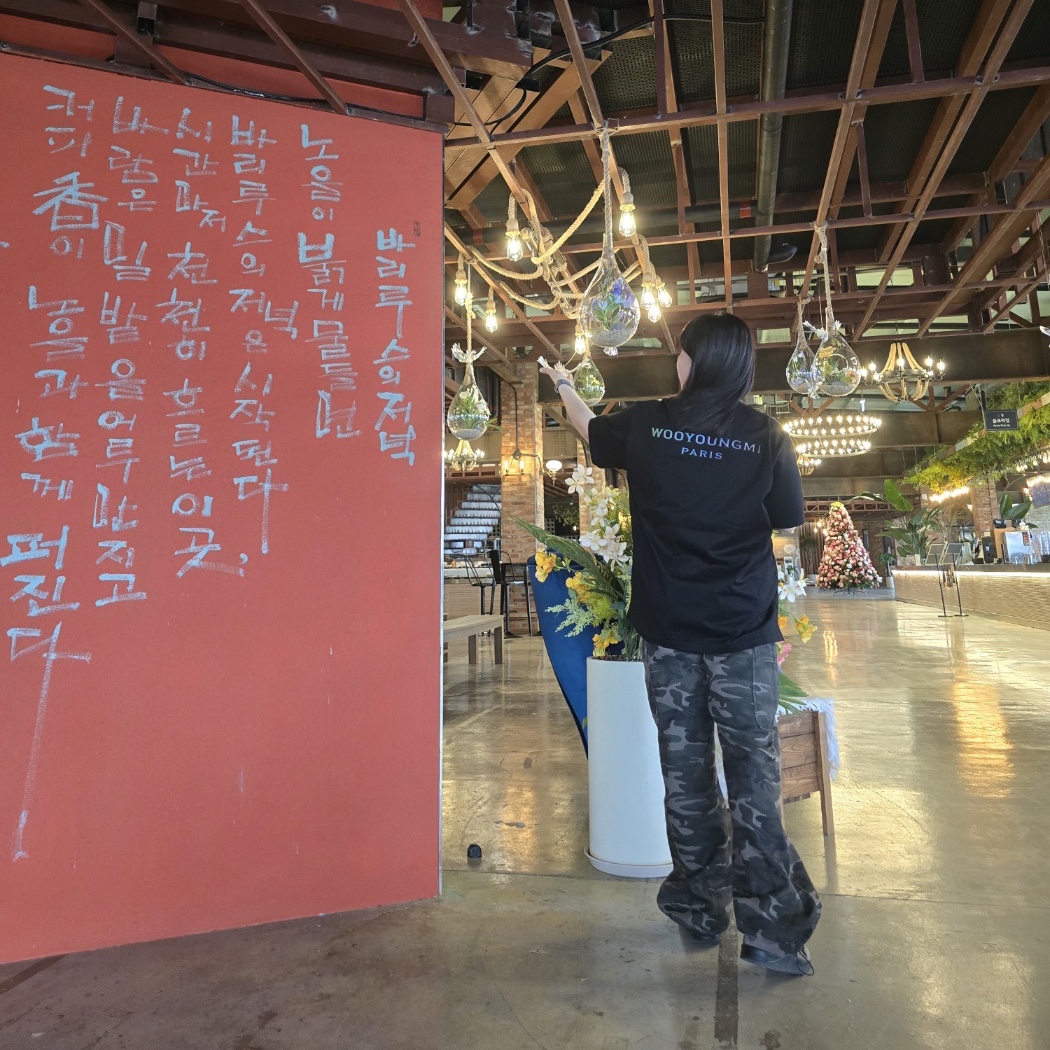 바리루스의저녁
노을이 붉게물들면
바리루스의 저녁은 시작된다
시간마저 천천히 흐르는 이곳,
바람은 밀밭을어루만지고
커피 香이 노을과 함께
퍼진다
WOOYOUNGMI
PARIS